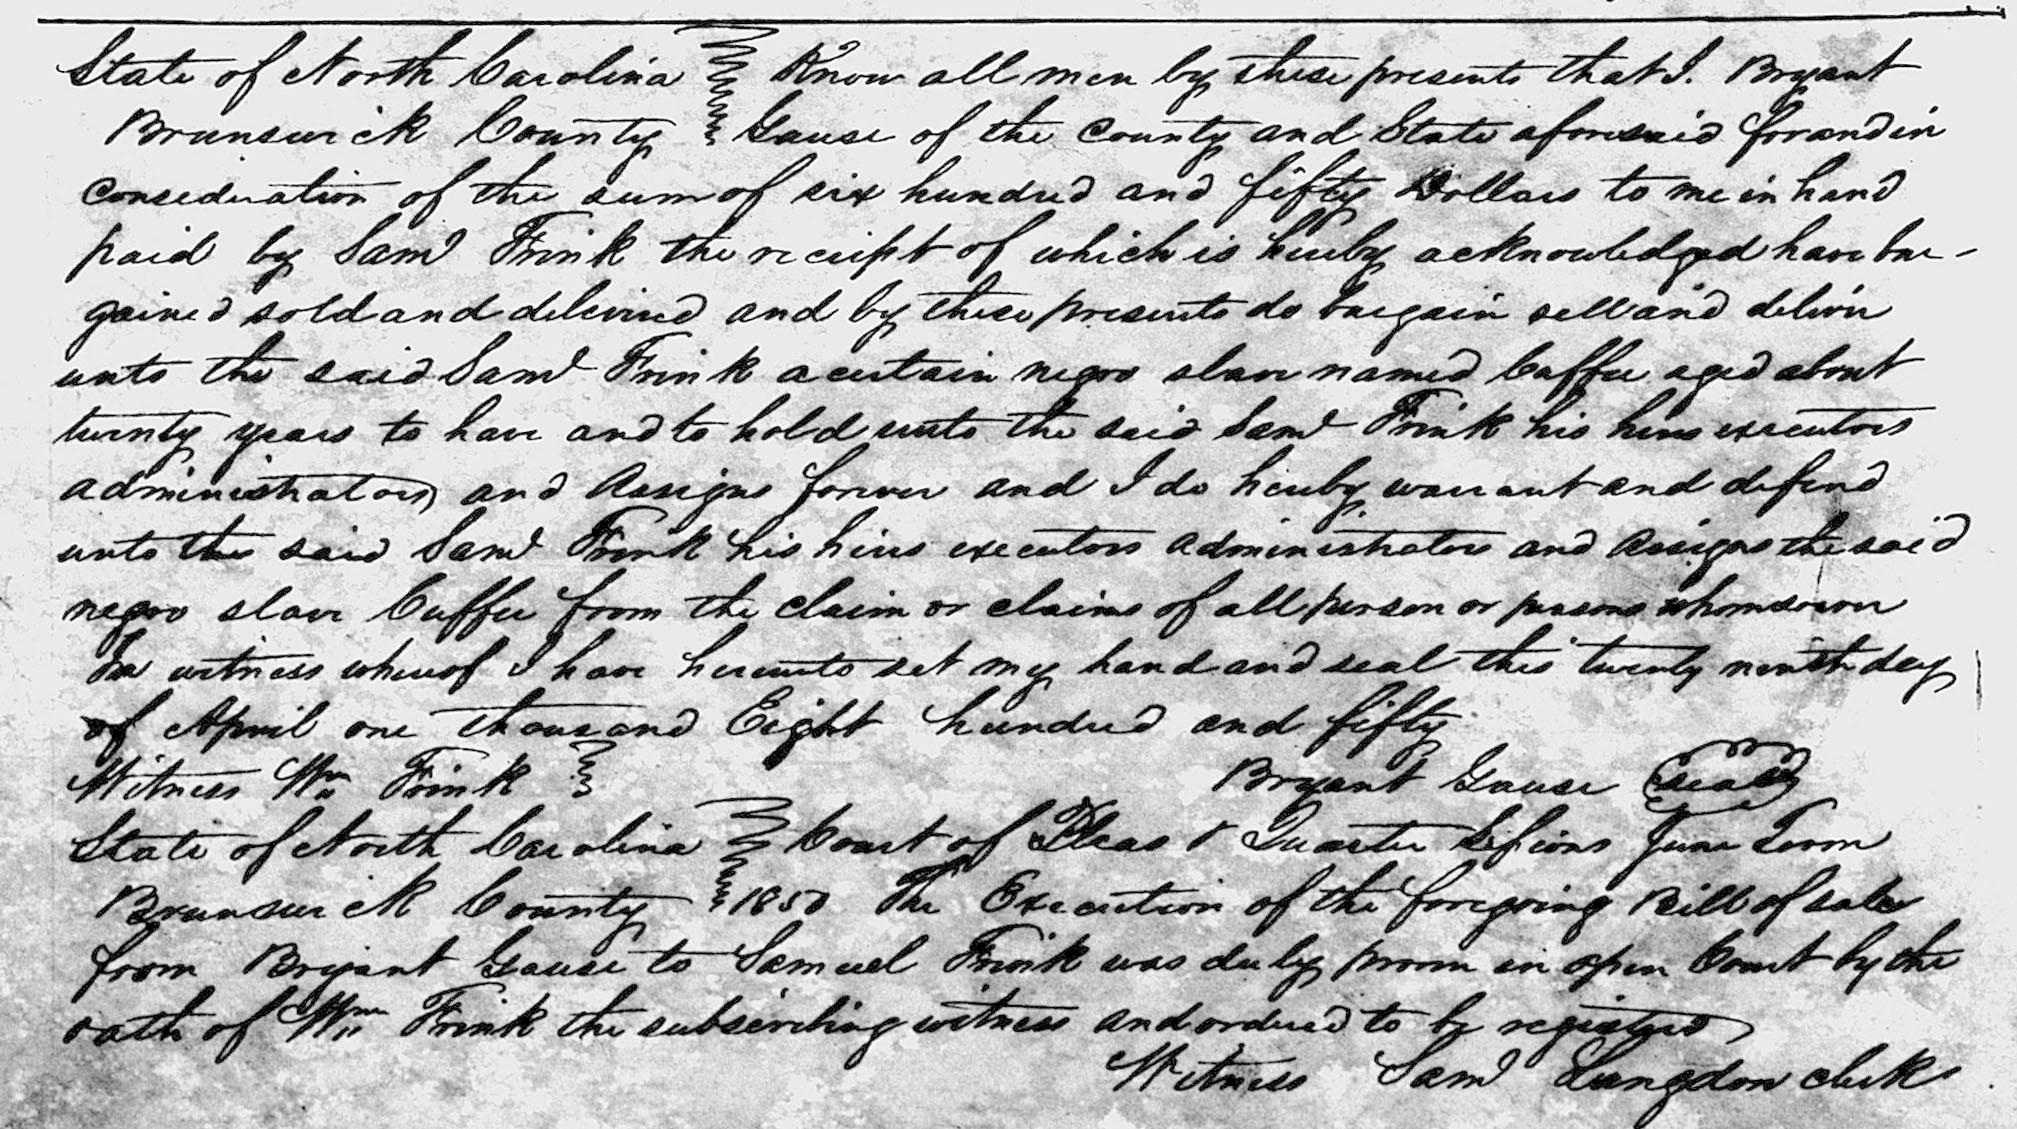 State of North Carolina Know all men by these presents that I. Bryant
Brunswick County Gause of the County and State aforesaid for and in
consideration of the sum of six hundred and fifty Dollars to me in hand
paid by Saml Frink the receipt of which is hereby acknowledged have bar-
gained sold and delivered and by these presents do bargain sell and deliver
unto the said Saml Frink a certain negro slave named Cuffee aged about
twenty years to have and to hold unto the said Saml Frink his heirs executors
administrators and Assigns forever and I do hereby warrant and defend
unto the said Saml Frink his heirs executors administrators and Assigns the said
negro slave Cuffee from the claim or claims of all person or persons whomsoever
In witness whereof I have hereunto set my hand and seal this twenty ninth day
of April one thousand Eight hundred and fifty
Witness Wm Frink Bryant Gause (seal)
State of North Carolina Court of Pleas & Quarter Sessions June Term
Brunswick County 1850 The Execution of the foregoing Bill of sale
from Bryant Gause to Samuel Frink was duly proven in open Court by the
oath of Wm Frink the subscribing witness and ordered to be registered
Witness Saml Langdon clerk